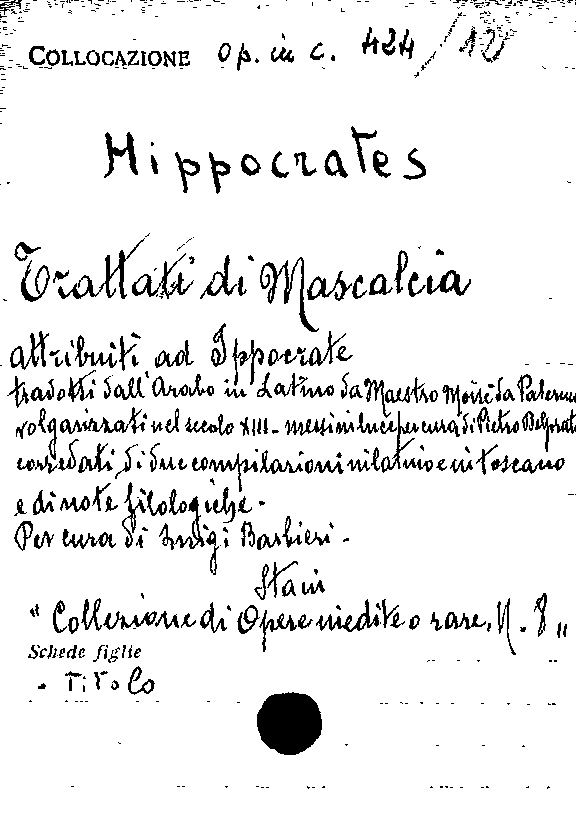 COLLOCAZIONE Op. in c. 424/12
Hippocrates
Trattati di Mascalcia
attribuiti ad Ippocrate
tradotti dall'Arabo in Latino da Maestro Moisè da Palermo
volgarizzati nel secolo XIII - messi in luce per cura di Pietro Delprato
corredati di due compilazioni in latino e in toscano
e di note filologiche -
Per cura di Luigi Barbieri -
Sta in
"Collezione di Opere inedite o rare, N. 8"
Schede figlie
- Titolo